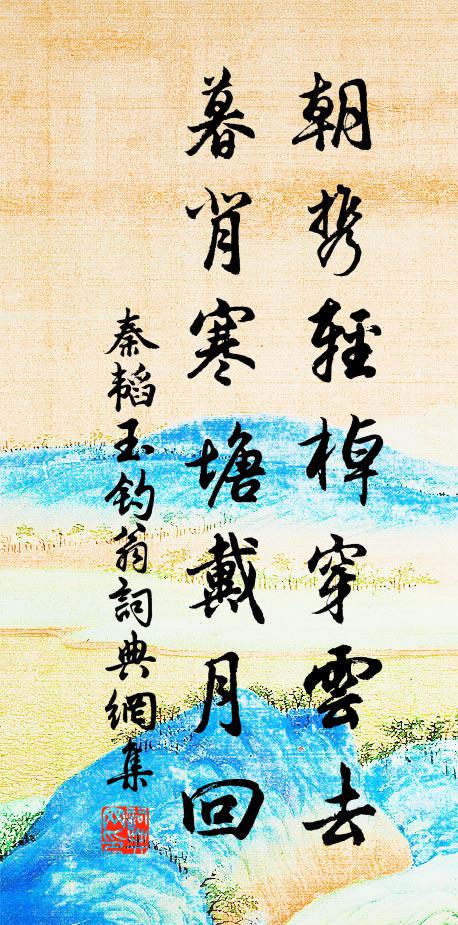 朝携輕棹穿雲去
暮背寒塘戴月回
秦韬玉钓翁詞典網集